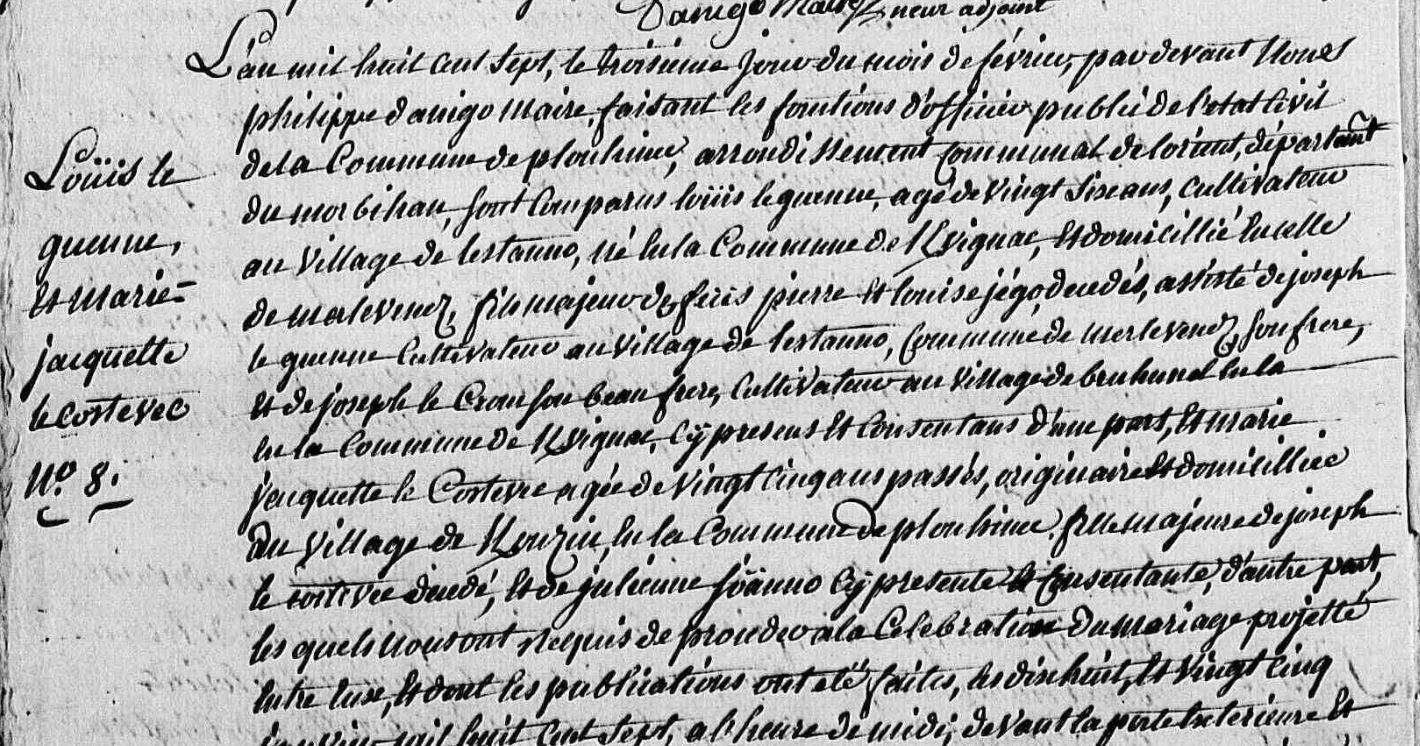 Danigo Maire
neur adjoint
L'an mil huit cent sept, le troisieme jour du mois de février, par devant Nous
philippe danigo Maire, faisant les fonctions d'officier public de l'etat civil
de la Commune de plouhinec, arrondissement Communal de lorient, départemt
du morbihan, sont Comparus loüis le guenne, agé de vingt six ans, cultivateur
au village de lestanno, né en la Commune de Kvignac, et domicillié en celle
de merlevenez, fils majeur de feus pierre et louise jégo décédés, assisté de joseph
le guenne Cultivateur au village de lestanno, Commune de merlevenez, son frere,
et de joseph le Crom son beau frere, Cultivateur au village de
en la Commune de Kvignac, cÿ presens et Consentans d'une part, et marie
jacquette le Costevec agée de vingt cinq ans passés, originaire et domicilliée
au village de Kouzin, en la Commune de plouhinec, fille majeure de joseph
le costevec décédé, et de julienne cÿ presente et Consentante, d'autre part,
les quels nous ont requis de proceder a la Celebration du mariage projetté
entre eux, et dont les publications ont eté faites, les dix huit, et vingt cinq
janvier mil huit Cent Sept, a l'heure de midi, devant la porte exterieure et
Loüis le
guenne,
et marie-
jacquette
le costevec
No. 8.